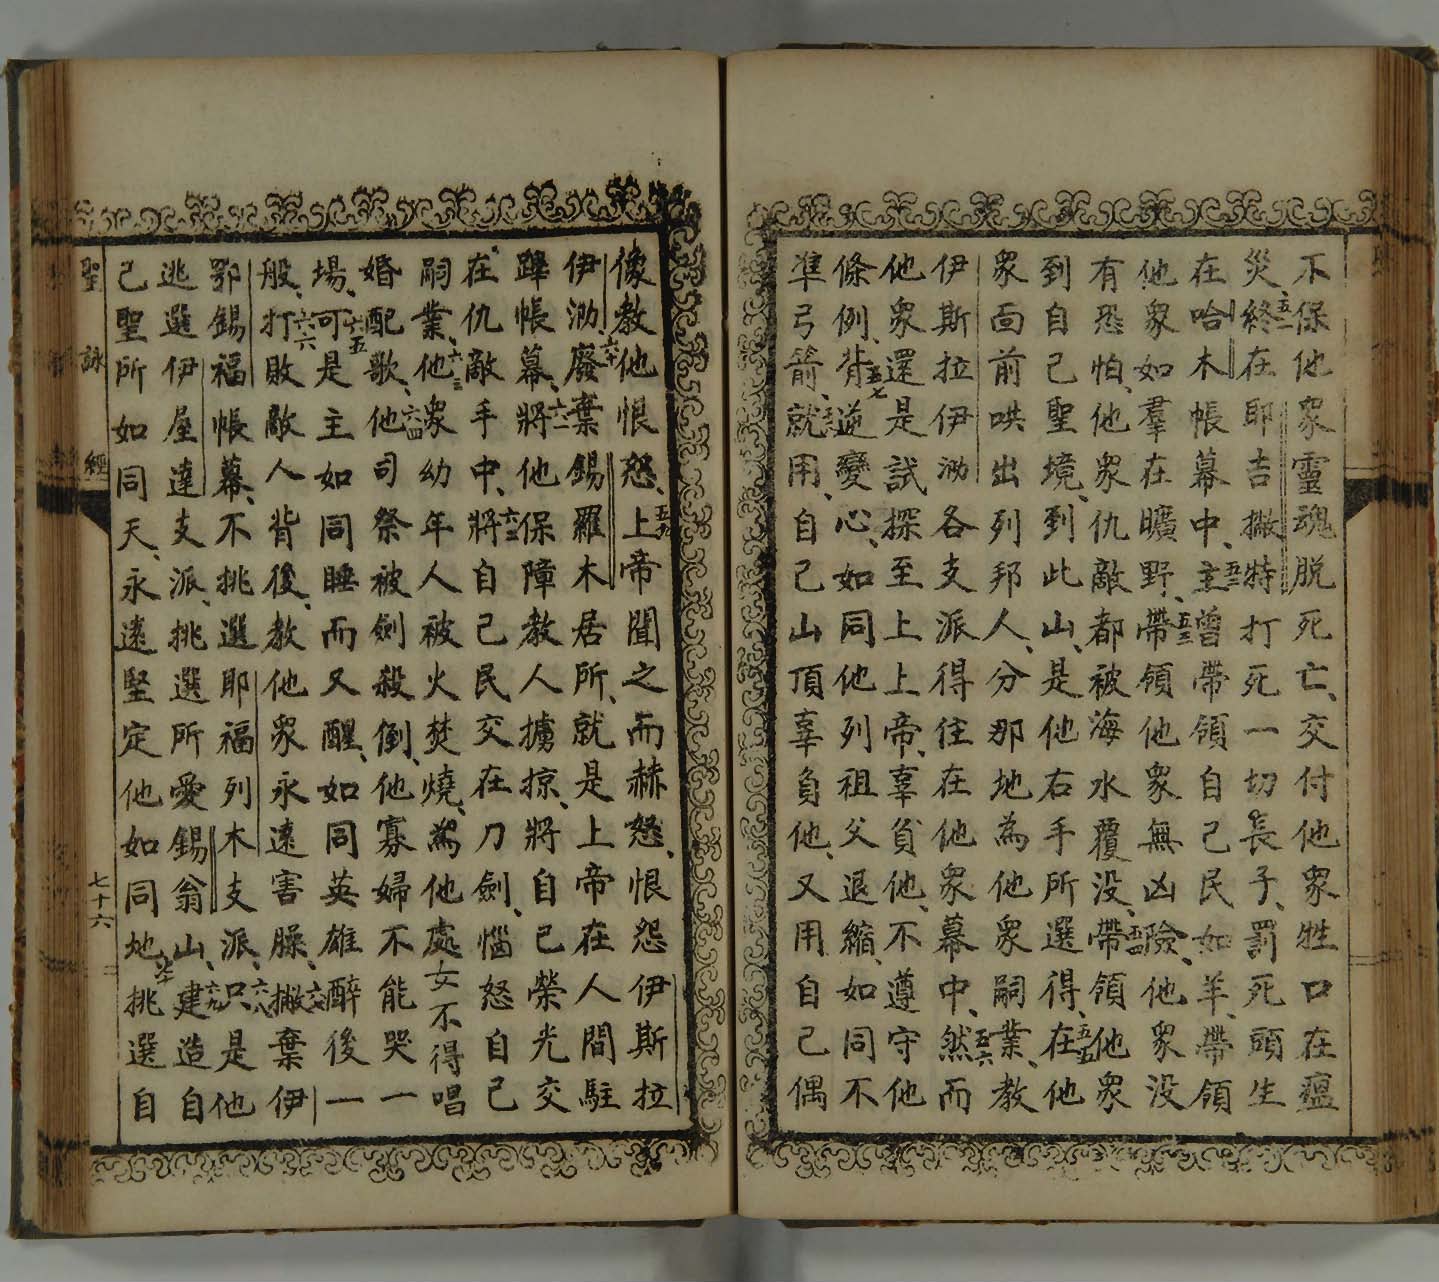 不保他眾靈魂脱死亡、交付他眾牲口在瘟
災、五一終在耶吉撇特打死一切長子、罰死頭生
在哈木帳幕中、五二主曾帶領自己民如羊、帶領
他眾如羣在曠野、五三帶領他眾無凶險、他眾没
有恐怕、他眾仇敵都被海水覆没、五四帶領他眾
到自己聖境、到此山、是他右手所選得、五五在他
眾面前哄出列邦人、分那地為他眾嗣業、教
伊斯拉伊泐各支派得住在他眾幕中、五六然而
他眾還是試探至上上帝、辜負他、不遵守他
條例、五七背逆變心、如同他列祖父退縮、如同不
準弓箭、五八就用自己山頂辜負他、又用自己偶
像教他恨怒、五九上帝聞之而赫怒、恨怨伊斯拉
伊泐、六十廢棄錫羅木居所、就是上帝在人間駐
蹕帳幕、六一將他保障教人擄掠、將自己榮光交
在仇敵手中、六二將自己民交在刀劍、惱怒自己
嗣業、六三他眾幼年人被火焚燒、為他處女不得唱
婚配歌、六四他司祭被劍殺倒、他寡婦不能哭一
場、六五可是主如同睡而又醒、如同英雄醉後一
般、六六打敗敵人背後、教他眾永遠害臊、六七撇棄伊
鄂錫福帳幕、不挑選耶福列木支派、六八只是他
逃選伊屋達支派、挑選所愛錫翁山、六九建造自
己聖所如同天、永遠堅定他如同地、七十挑選自
聖詠經
七十六